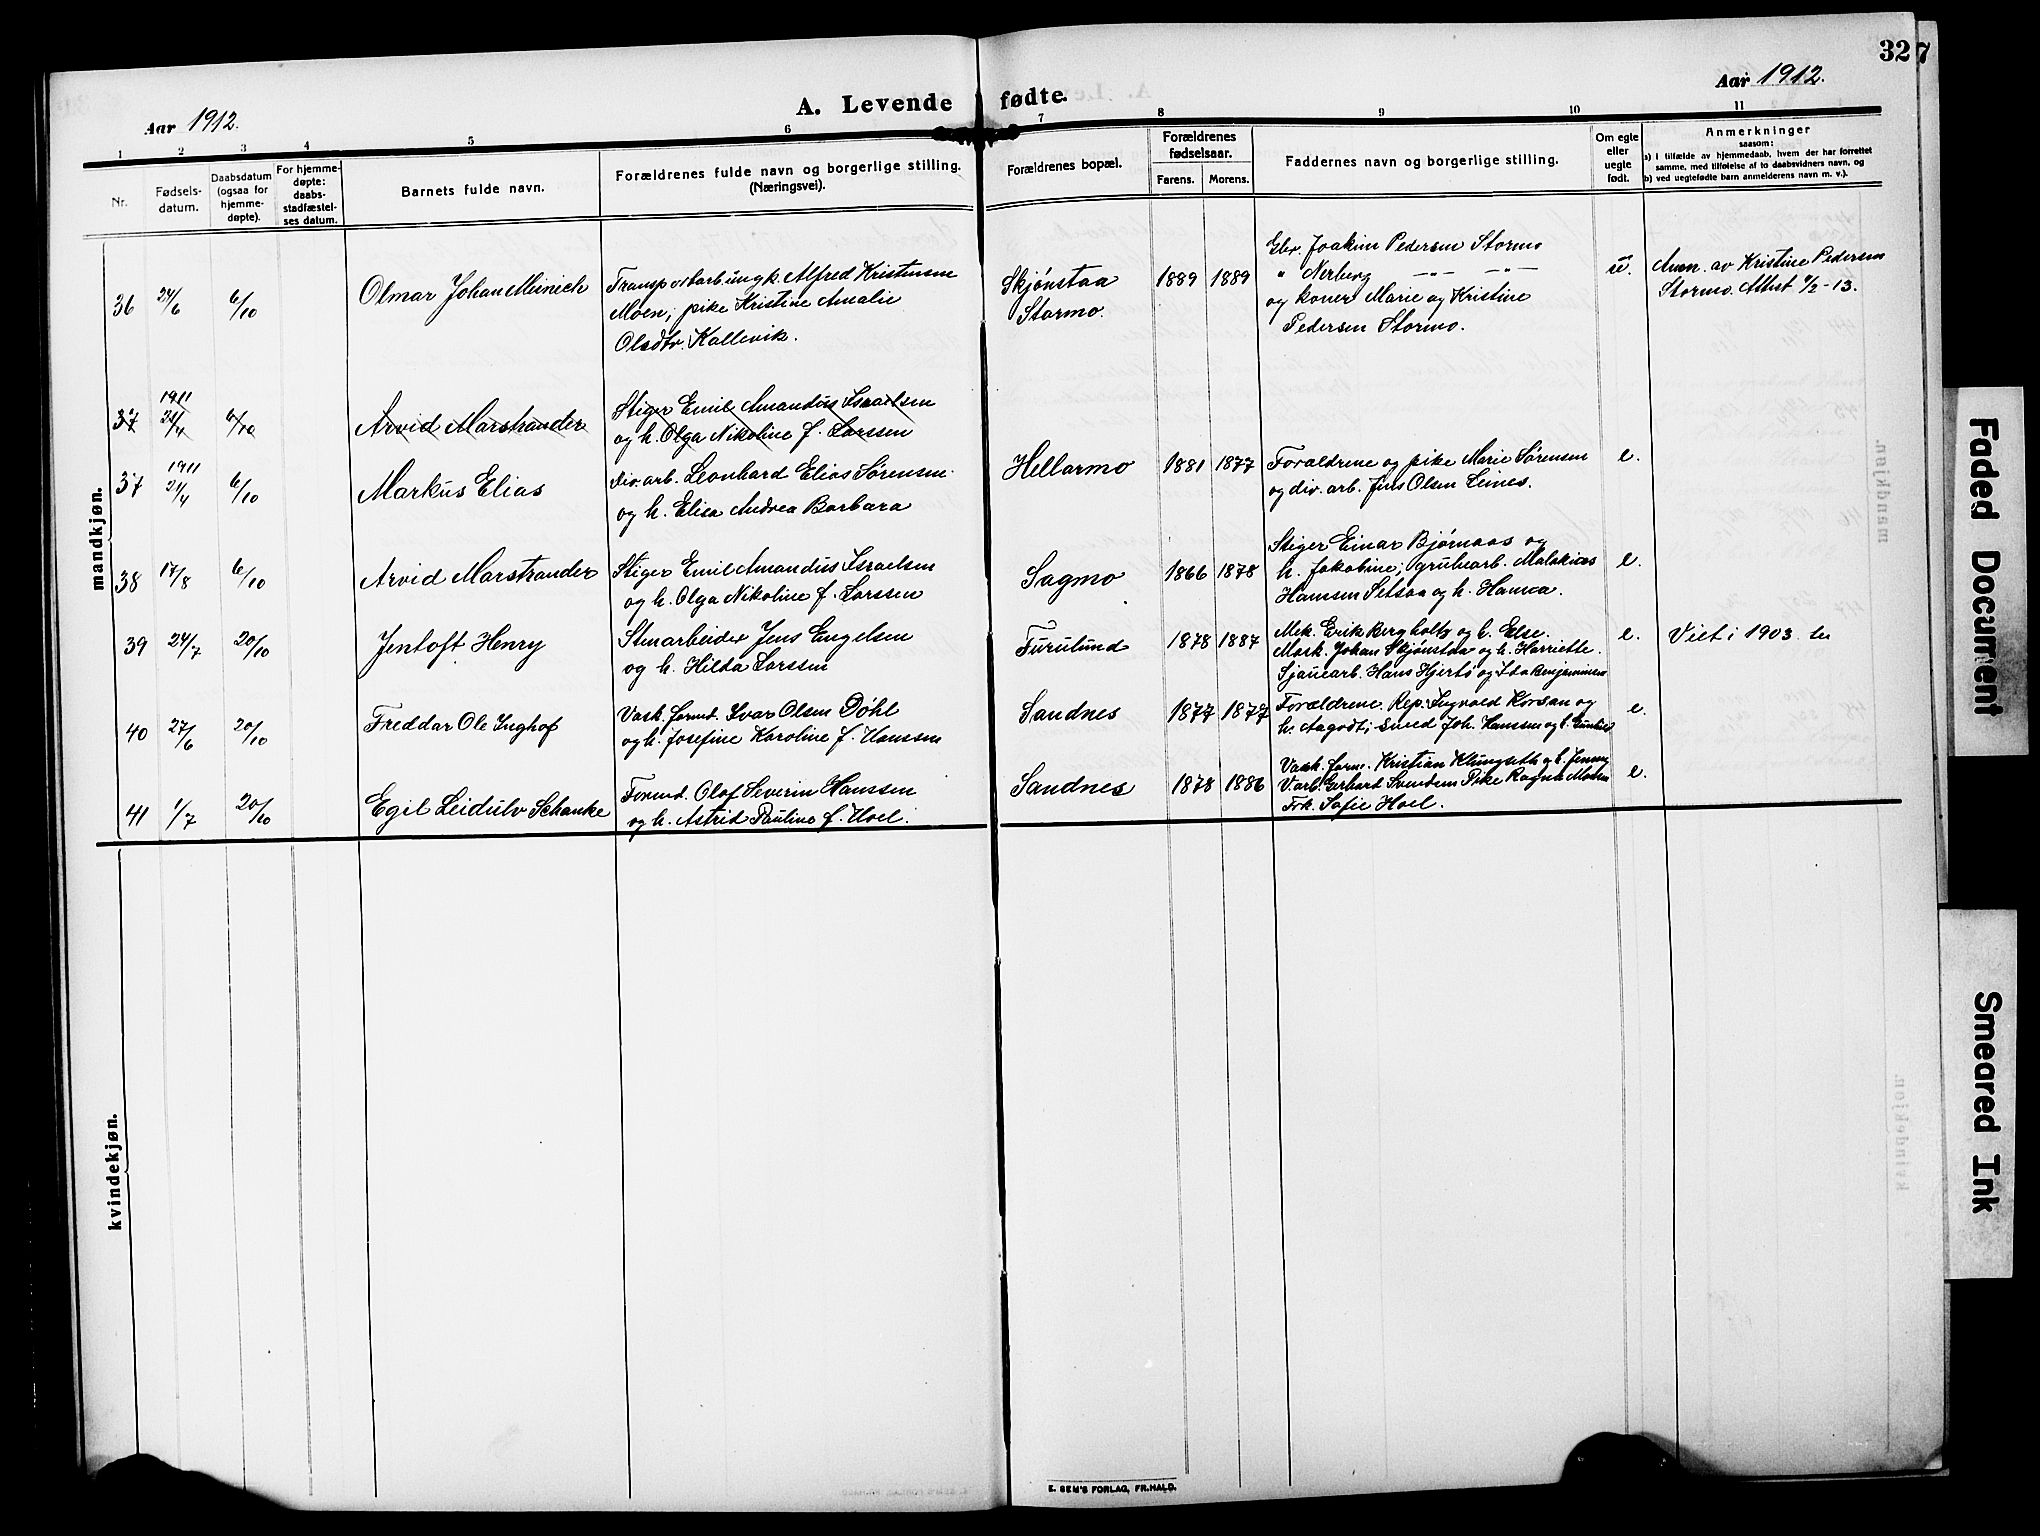 32
7
Aar 1912.
A. Levende fødte.
Aar 1912.
1 2 3 4 5 6 7 8 9 10 11
Nr.
Fødsels-
datum.
Daabsdatum
(ogsaa for
hjemme-
døpte).
For hjemme-
døpte:
daabs
stadfæstel-
ses datum.
Barnets fulde navn.
Forældrenes fulde navn og borgerlige stilling.
(Næringsvei).
Forældrenes bopæl.
Forældrenes
fødselsaar.
Farens. Morens.
Faddernes navn og borgerlige stilling.
Om egte
eller
uegte
født.
Anmerkninger
saasom:
a) i tilfælde av hjemmedaab, hvem der har forrettet
samme, med tilføielse af to daabsvidners navn, og
b) ved uegtefødte barn anmelderens navn m. v.).
mandkjøn.
36 24/6 6/10 Olmar Johan Meinich
Transportarb ungk. Alfred Kristensen
Moen; pike Kristine Amalie
Olsdtr. Kallevik.
Skjønstaa
Stormo.
1889 1889
Gbr. Joakim Pedersen Stormo
" Nerberg —"— —"—
og koner Marie og Kristine
Pedersen Stormo.
u.
Anm. av Kristine Pedersen
Stormo. Attest 1/2-13.
37 1911 21/4 6/10 Arvid Marstrander
Stiger Emil Amandus Israelsen
og h. Olga Nikoline f. Larssen
37 1911 21/4 6/10 Markus Elias
Div. arb. Leonhard Elias Sørensen
og h. Elisa Andrea Barbara
Hellarmo 1881 1877
Forældrene og pike Marie Sørensen
og div. arb. Jens Olsen Leines.
e.
38 17/8 6/10 Arvid Marstrander
Stiger Emil Amandus Israelsen
og h. Olga Nikoline f. Larssen
Sagmo 1866 1878
Stiger Einar Bjørnaas og
h. Jakobine; grubearb. Malakias
Hanssen Setsaa og h. Hanna.
e.
39 24/7 20/10 Jentoft Henry
Stenarbeider Jens Engelsen
og h. Hilda Larssen
Furulund 1878 1887
Mek. Erik Bergholtz og h. Else.
Mask. Johan Skjønstaa og h. Harriette.
Sjauearb. Hans Hjertø og Ida Benjaminsen
e. Viet i 1903
40 27/6 20/10 Freddar Ole Inghof
Vask. formd. Ivar Olsen Døhl
og h. Josefine Karoline f. Hanssen
Sandnes 1877 1877
Forældrene. Rep. Sigvald Korsan og
h. Aagodt; smed Joh. Hanssen og h.
e.
41 1/7 20/10 Egil Leidulv Schanke
Formd. Olaf Severin Hanssen
og h. Astrid Pauline f. Hoel.
Sandnes 1878 1886
Vask. form. Kristian Klungseth og h. Jenny
V.arb. Gerhard Svendsen Pike Ragna Moen
Frk. Sofie Hoel.
e.
kvindekjøn.
E. SEM'S FORLAG, FR.HALD.
Faded Document
Smeared Ink